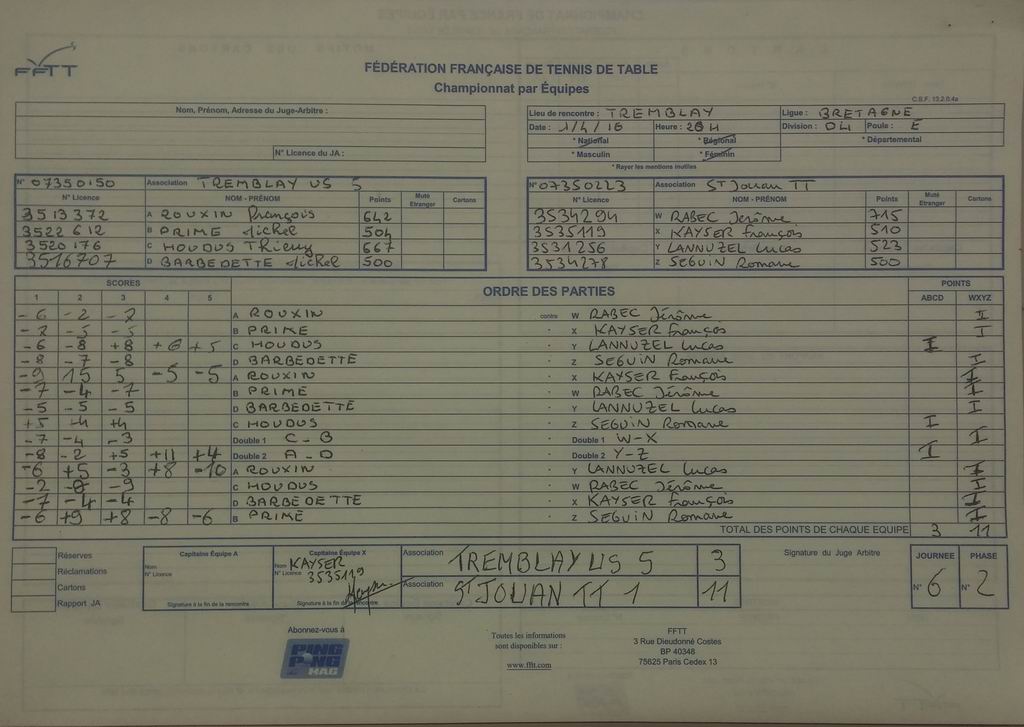 FFTT
FÉDÉRATION FRANÇAISE DE TENNIS DE TABLE
Championnat par Équipes
C.B.F. 13.2.0.4a
Nom, Prénom, Adresse du Juge-Arbitre :
N° Licence du JA :
Lieu de rencontre : TREMBLAY Ligue : BRETAGNE
Date : 1/4/16 Heure : 20H Division : D4 Poule : E
* National * Régional * Départemental
* Masculin * Féminin
* Rayer les mentions inutiles
N° 07350150 Association TREMBLAY US 5
N° Licence NOM - PRÉNOM Points Muté Etranger Cartons
3513372 A ROUXIN François 642
3522612 B PRIME Michel 504
3520176 C HOUDUS Thierry 667
3516707 D BARBEDETTE Michel 500
N° 07350223 Association ST Jouan TT
N° Licence NOM - PRÉNOM Points Muté Etranger Cartons
3534294 W RABEC Jérôme 715
3535119 X KAYSER François 510
3531256 Y LANNUZEL Lucas 523
3534278 Z SEGUIN Romane 500
SCORES ORDRE DES PARTIES POINTS
1 2 3 4 5 ABCD WXYZ
-6 -2 -7 A ROUXIN contre W RABEC Jérôme I
-7 -5 -5 B PRIME - X KAYSER François I
-6 -8 +8 +6 +5 C HOUDUS - Y LANNUZEL Lucas I
-8 -7 -8 D BARBEDETTE - Z SEGUIN Romane I
-9 15 5 -5 -5 A ROUXIN - X KAYSER François I
-7 -4 -7 B PRIME - W RABEC Jérôme I
-5 -5 -5 D BARBEDETTE - Y LANNUZEL Lucas I
+5 +4 +4 C HOUDUS - Z SEGUIN Romane I
-7 -4 -3 Double 1 C-B - Double 1 W-X I
-8 -2 +5 +11 +4 Double 2 A-D - Double 2 Y-Z I
-6 +5 -3 +8 -10 A ROUXIN - Y LANNUZEL Lucas I
-2 -8 -9 C HOUDUS - W RABEC Jérôme I
-7 -4 -4 D BARBEDETTE - X KAYSER François I
-6 +9 +8 -8 -6 B PRIME - Z SEGUIN Romane I
TOTAL DES POINTS DE CHAQUE EQUIPE 3 11
Réserves
Réclamations
Cartons
Rapport JA
Capitaine Équipe A
Nom
N° Licence
Signature à la fin de la rencontre
Capitaine Équipe X
Nom KAYSER
N° Licence 3535119
Signature à la fin de la rencontre
Association TREMBLAY US 5 3
Association ST JOUAN TT 1 11
Signature du Juge Arbitre
JOURNEE PHASE
N° 6 N° 2
Abonnez-vous à
PING PONG MAG
Toutes les informations
sont disponibles sur :
www.fftt.com
FFTT
3 Rue Dieudonné Costes
BP 40348
75625 Paris Cedex 13